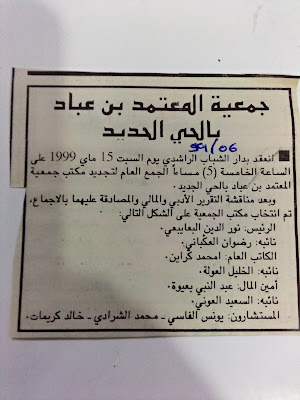 جمعية المعتمد بن عباد
بالحي الجديد
99/06
انعقد بدار الشباب الراشدي يوم السبت 15 ماي 1999 على
الساعة الخامسة (5) مساءا الجمع العام لتجديد مكتب جمعية
المعتمد بن عباد بالحي الجديد.
وبعد مناقشة التقرير الأدبي والمالي والمصادقة عليهما بالاجماع،
تم انتخاب مكتب الجمعية على الشكل التالي:
الرئيس: نور الدين البعابيعي.
نائبه: رضوان العكباني.
الكاتب العام: امحمد كراين.
نائبه: الخليل العولة.
أمين المال: عبد النبي بعيوة.
نائبه: السعيد العوني.
المستشارون: يونس الفاسي ـ محمد الشرادي ـ خالد كريمات.